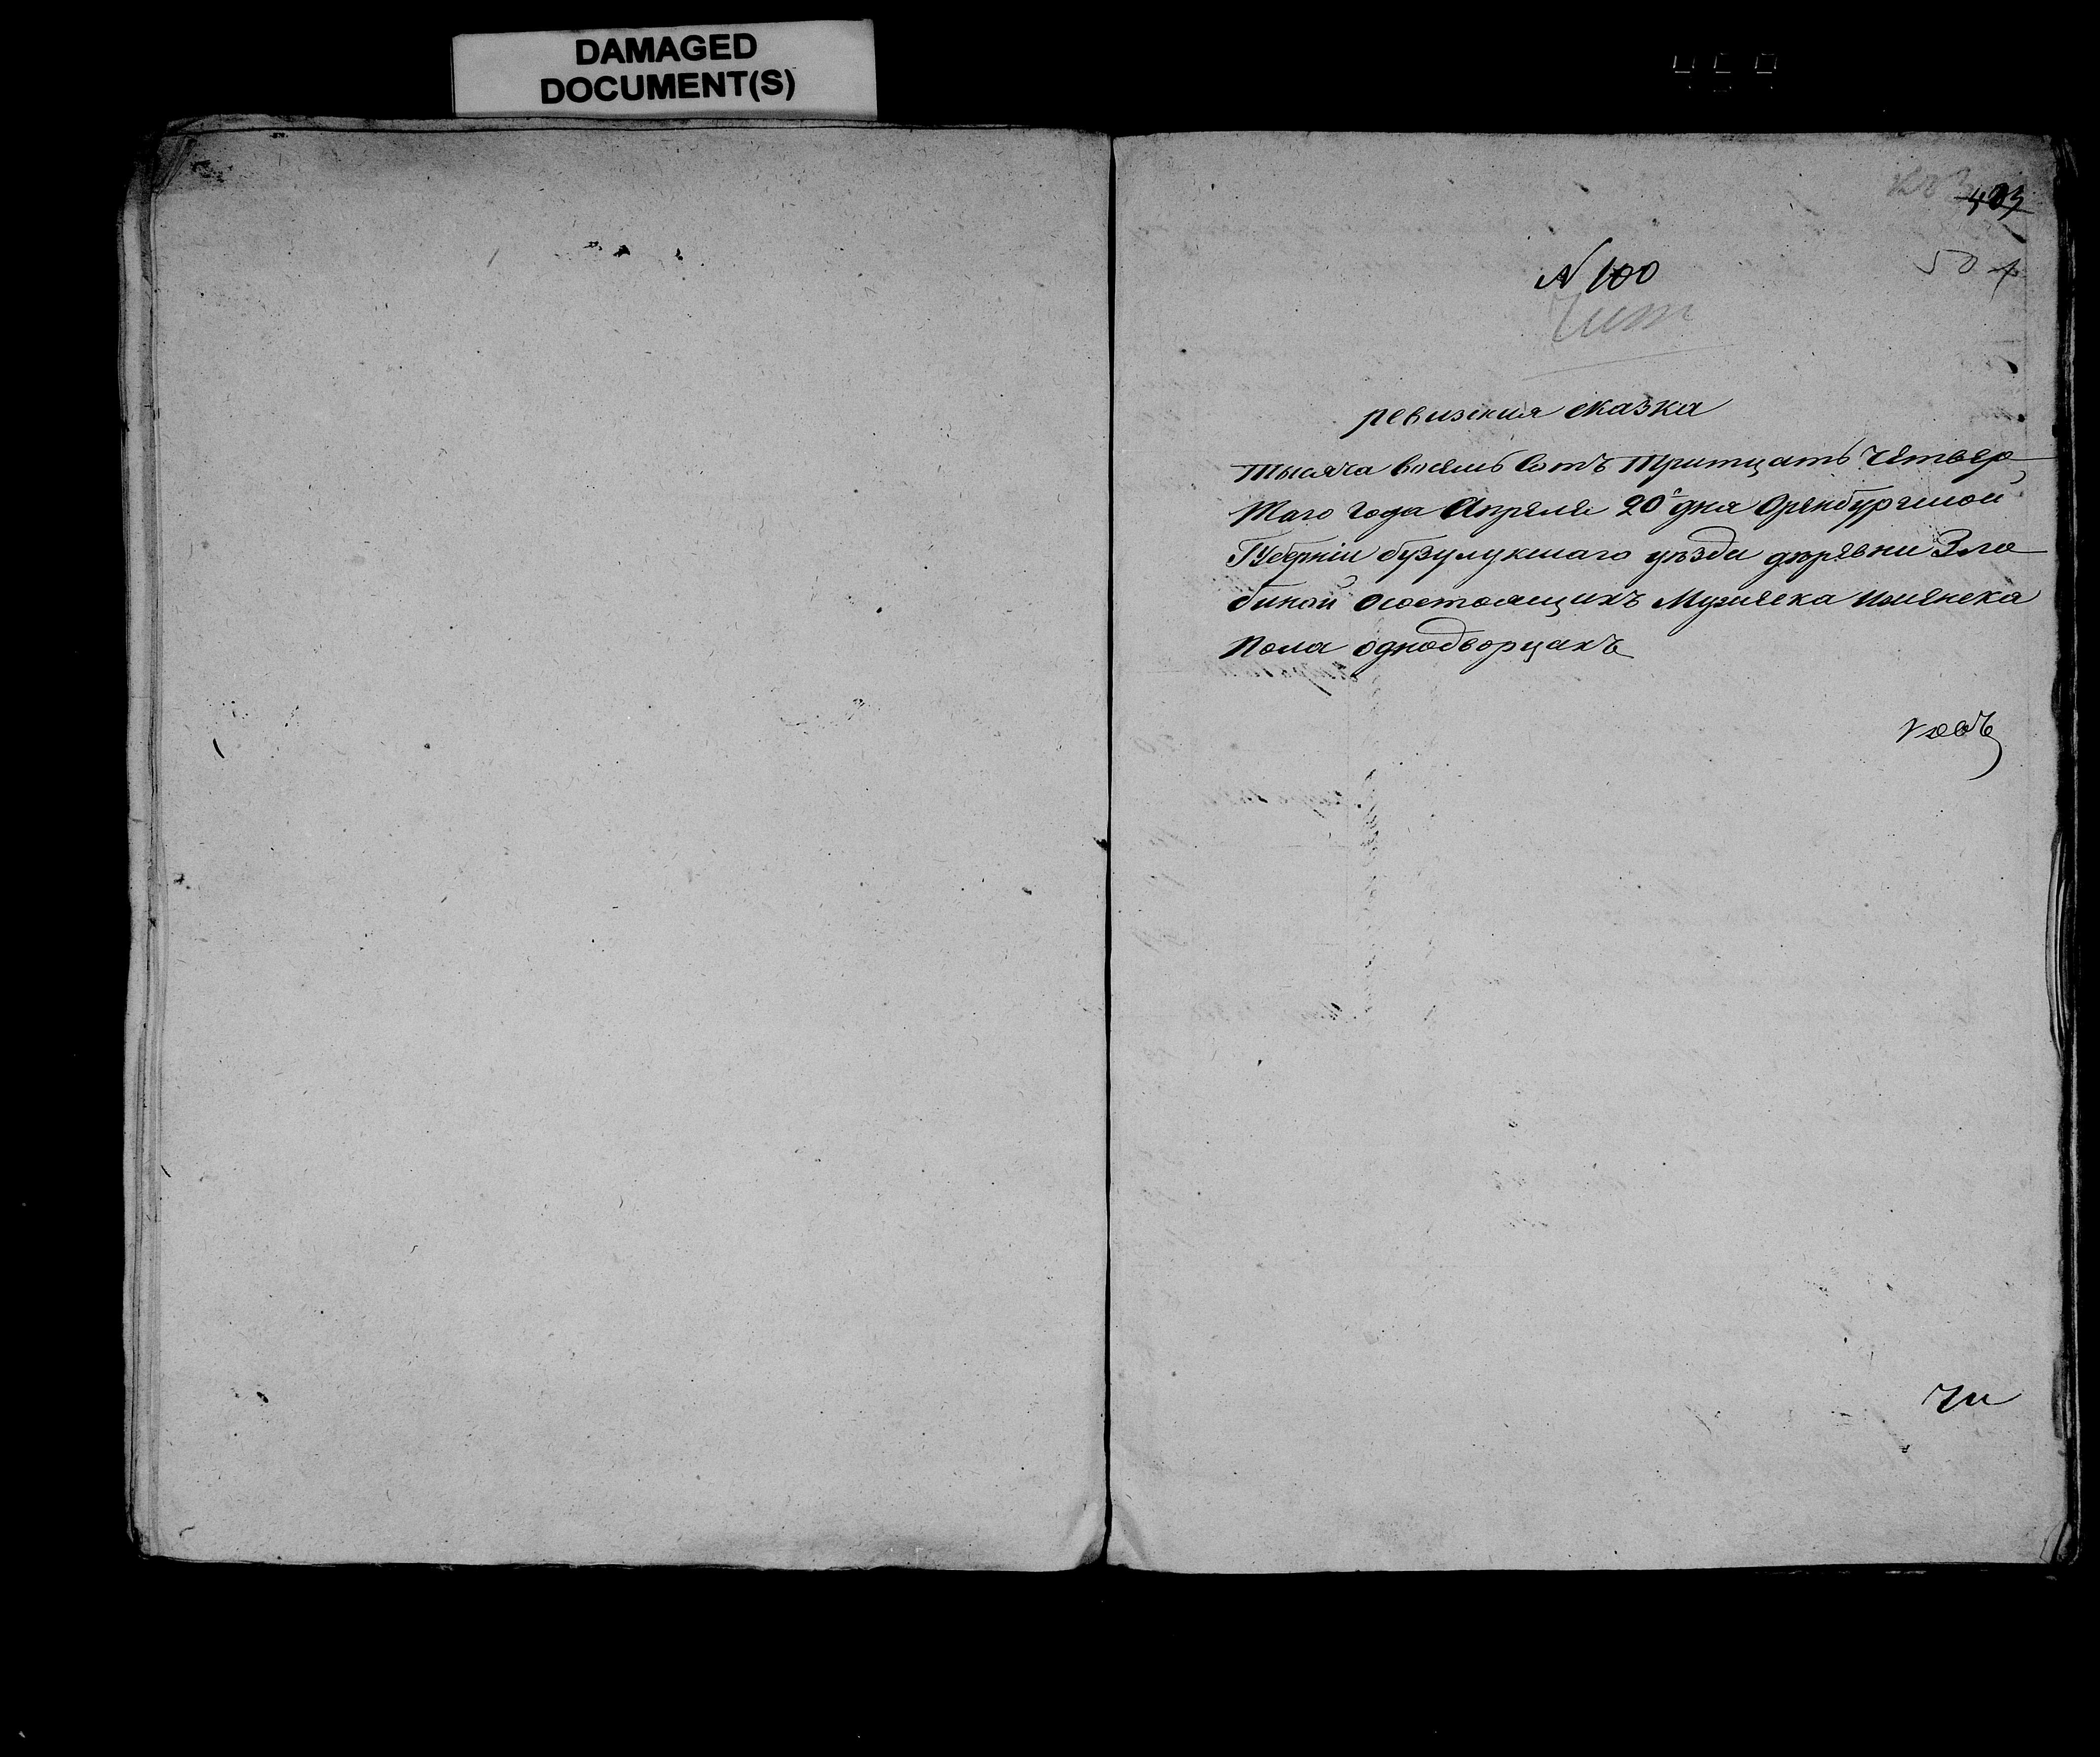 DAMAGED
DOCUMENT(S)
403
N 100
50
Чит
ревизкия сказка
Тысяча восемь Сотъ Тритцать Четвер
Таго Года Апреля 20 дня Оренбургской
Губерніи бузулукшаго уѣзда деревни Зло
биной осостоящихъ Мужеска иженска
Пола однодворцахъ